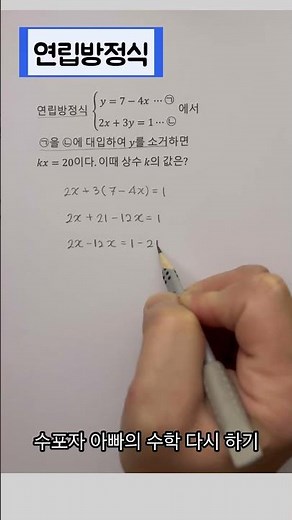 연립방정식
연립방정식 { y = 7 − 4x ⋯ ㉠ 에서
2x + 3y = 1 ⋯ ㉡
㉠을 ㉡에 대입하여 y를 소거하면
kx = 20이다. 이때 상수 k의 값은?
2x + 3(7 − 4x) = 1
2x + 21 − 12x = 1
2x − 12x = 1 − 21
수포자 아빠의 수학 다시 하기